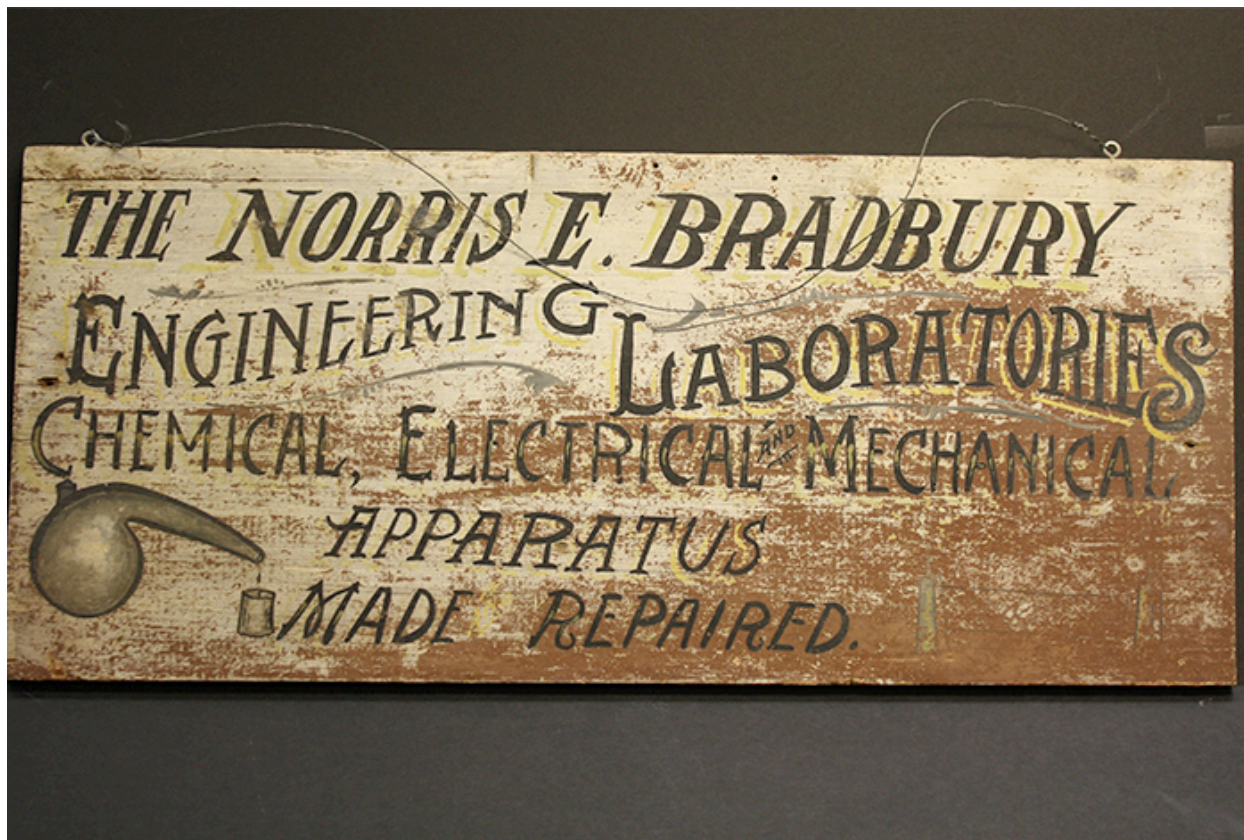 THE NORRIS E. BRADBURY
ENGINEERING LABORATORIES
CHEMICAL, ELECTRICAL AND MECHANICAL
APPARATUS
MADE REPAIRED.